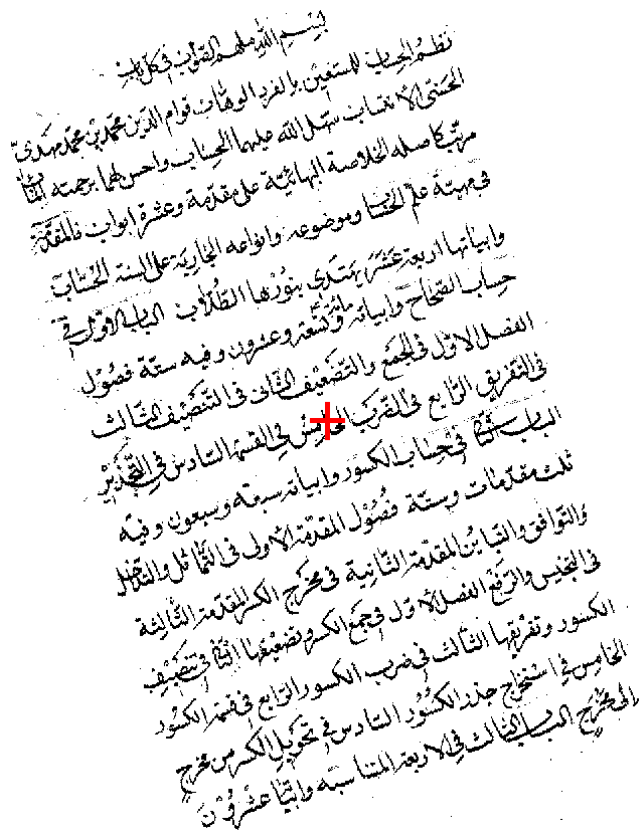 بسم الله ملهم الصواب في كل باب
نظم الحساب للمستعين بالفرد الوهاب قوام الدين محمد بن محمد مهدي
الحسني الانتساب سهل الله عليهما الحساب واحسن لهما برحمته المآب
مرتب كاصله الخلاصة البهائية على مقدمة وعشرة ابواب فالمقدمة
في مهية علم الحساب وموضوعه وانواعه الجارية على السنة الحساب
وابياتها اربعة عشر يهتدى بنورها الطلاب الباب الاول في
حساب الصحاح وابياته مائة وتسعة وعشرون وفيه ستة فصول
الفصل الاول في الجمع والتضعيف الثانى في التنصيف الثالث
في التفريق الرابع في الضرب الخامس في القسمة السادس في التجذير
الباب الثانى في حساب الكسور وابياته سبعة وسبعون وفيه
ثلث مقدمات وستة فصول المقدمة الاولى في التماثل والتداخل
والتوافق والتباين المقدمة الثانية في مخرج الكسر المقدمة الثالثة
في التجنيس والرفع الفصل الاول في جمع الكسر وتضعيفها الثانى في تنصيف
الكسور وتفريقها الثالث في ضرب الكسور الرابع في قسمة الكسور
الخامس في استخراج جذر الكسور السادس في تحويل الكسر من مخرج
الى مخرج الباب الثالث في الاربعة المتناسبة وابياتها عشرون